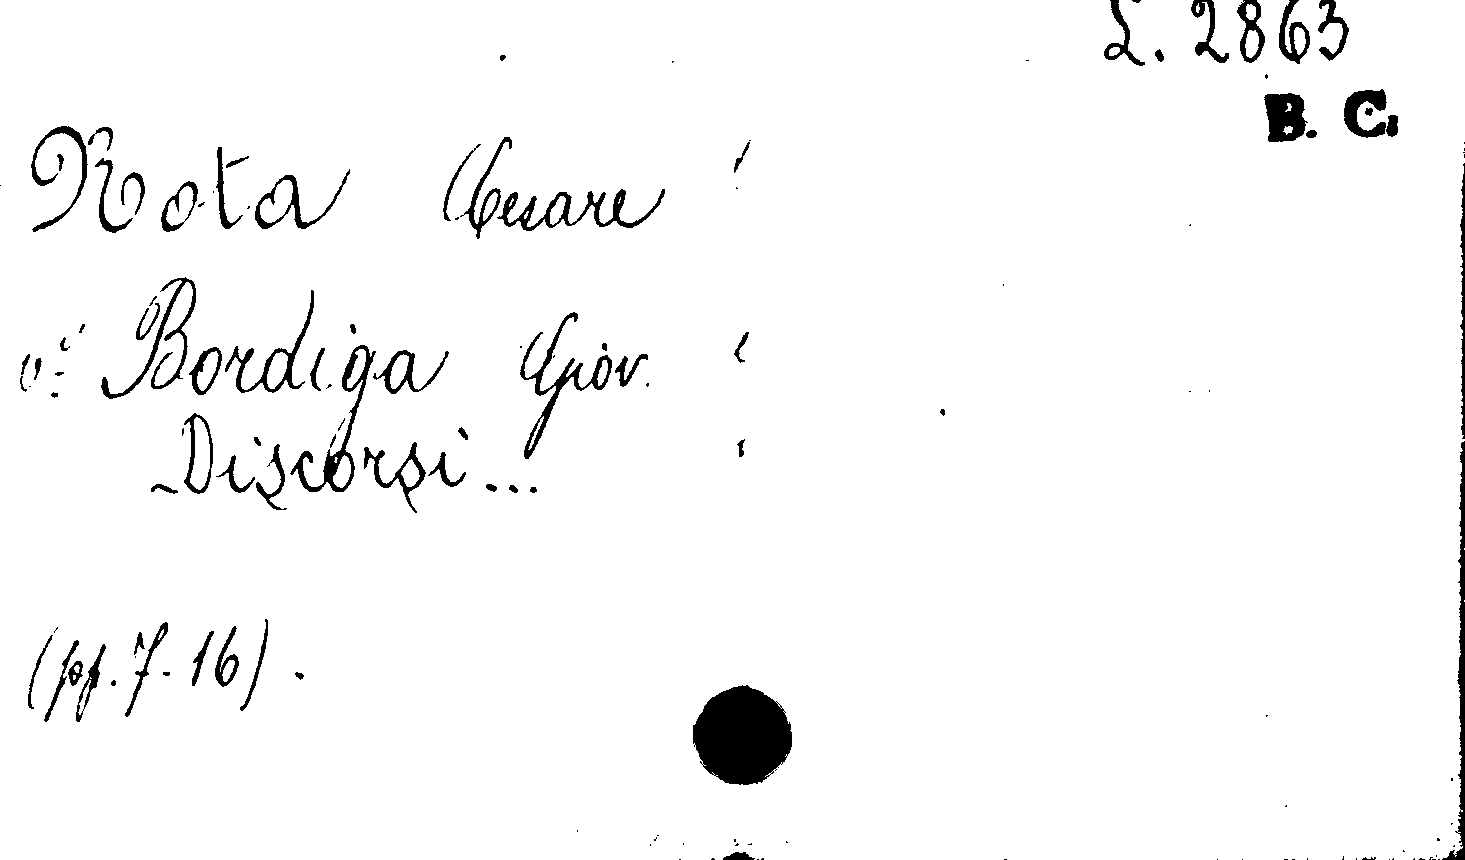 L. 2863
B. C.
Rota Cesare
v: Bordiga Giov.
Discorsi...
(pp. 7-16).